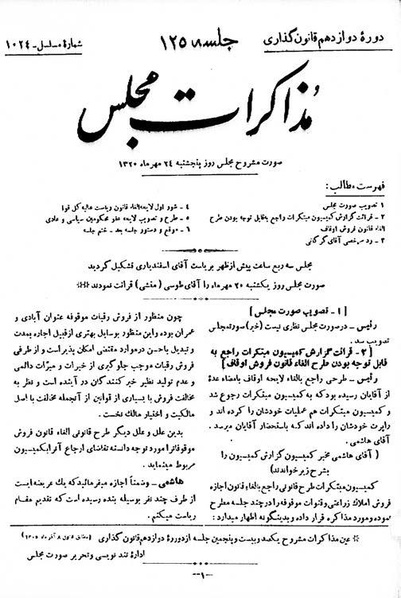 دورهٔ دوازدهم قانون گذاری
جلسه ۱۲۵
شمارهٔ مسلسل - ۱۰۲۴
مذاکرات مجلس
صورت مشروح مجلس روز پنجشنبه ۲۴ مهرماه ۱۳۲۰
فهرست مطالب:
۱ - تصویب صورت مجلس
۲ - قرائت گزارش کمیسیون مبتکرات راجع بقابل توجه بودن طرح
الغاء قانون فروش اوقاف
۳ - رد مرخصی آقای گرگانی
۴ - شور اول لایحه الغاء قانون ریاست عالیه کل قوا
۵ - طرح و تصویب لایحه عفو محکومین سیاسی و عادی
۶ - موقع و دستور جلسه بعد - ختم جلسه
مجلس سه ربع ساعت پیش از ظهر بریاست آقای اسفندیاری تشکیل گردید
صورت مجلس روز یکشنبه ۲۰ مهرماه را آقای طوسی (منشی) قرائت نمودند
[ ۱ - تصویب صورت مجلس ]
رئیس - در صورت مجلس نظری نیست (خیر) صورت مجلس
تصویب شد.
[ ۲ - قرائت گزارش کمیسیون مبتکرات راجع به
قابل توجه بودن طرح الغاء قانون فروش اوقاف ]
رئیس - طرحی راجع بالغاء لایحه اوقاف بامضاء عدهٔ
از آقایان رسیده بود که به کمیسیون مبتکرات رجوع شد
و کمیسیون مبتکرات هم عملیات خودشان را کرده اند و
راپرت خودشان را داده اند که باستحضار آقایان میرسد.
آقای هاشمی.
( آقای هاشمی مخبر کمیسیون گزارش کمیسیون را
بشرح زیر خواندند )
کمیسیون مبتکرات طرح قانونی راجع بالغاء قانون اجازه
فروش املاک زراعتی و قنوات موقوفه را در چند جلسه مطرح
نموده و مورد مذاکره قرار داده و بدینگونه اظهار میدارد:
چون منظور از فروش رقبات موقوفه عنوان آبادی و
عمران بوده و این منظور بوسایل بهتری از قبیل اجاره بمدت
و تبدیل باحسن در موارد مقتضی امکان پذیر است و از طرفی
فروش رقبات موجب جلوگیری از خیرات و مبرات دائمی
و عدم تولید نظیر خیر کنندگان در آینده است و نظر به
مخالفت فروش با بسیاری از قوانین از آنجمله مخالفت با اصل
مالکیت و اختیار مالک نخست.
بدین علل و علل دیگر طرح قانونی الغاء قانون فروش
موقوفات را مورد توجه دانسته تقاضای ارجاع آنرا بکمیسیون
مربوط مینماید.
هاشمی - و ضمناً اجازه میفرمائید که یک عرضی است
از طرف چند نفر بوسیله بنده رسیده است که تقدیم مقام
ریاست میکنم.
عین مذاکرات مشروح یکصد و بیست و پنجمین جلسه از دورهٔ دوازدهم قانون گذاری
ادارهٔ تند نویسی و تحریر صورت مجلس
-۱-